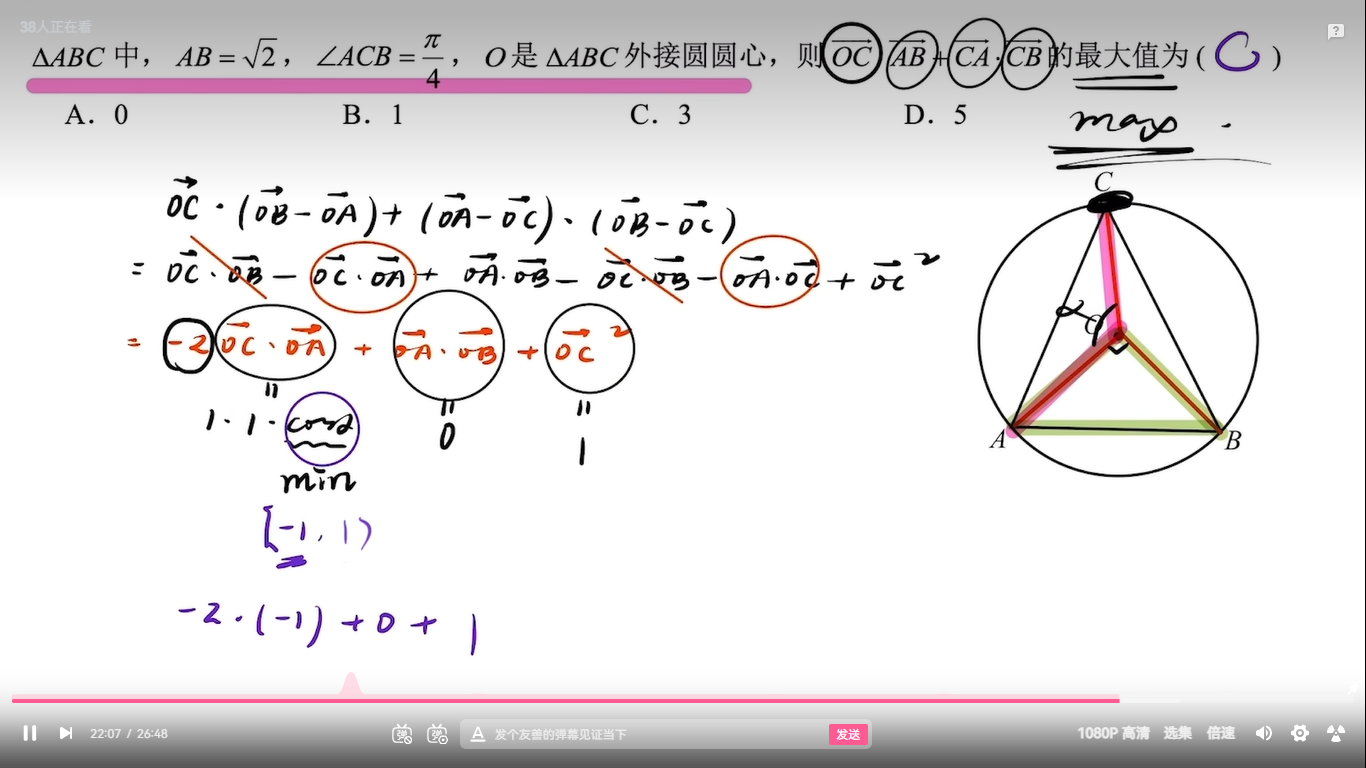 38人正在看
△ABC 中，AB=√2，∠ACB=π/4，O是 △ABC 外接圆圆心，则 OC⃗·AB⃗+CA⃗·CB⃗ 的最大值为 ( C )
A．0 B．1 C．3 D．5
max .
OC⃗·(OB⃗-OA⃗)+(OA⃗-OC⃗)·(OB⃗-OC⃗)
= OC⃗·OB⃗-OC⃗·OA⃗+OA⃗·OB⃗-OC⃗·OB⃗-OA⃗·OC⃗+OC⃗²
= -2 OC⃗·OA⃗ + OA⃗·OB⃗ + OC⃗²
1·1·cosα
0
1
min
[-1, 1)
-2·(-1)+0+1
C
α O
A B
22:07 / 26:48
弹 弹 A 发个友善的弹幕见证当下 发送
1080P 高清 选集 倍速